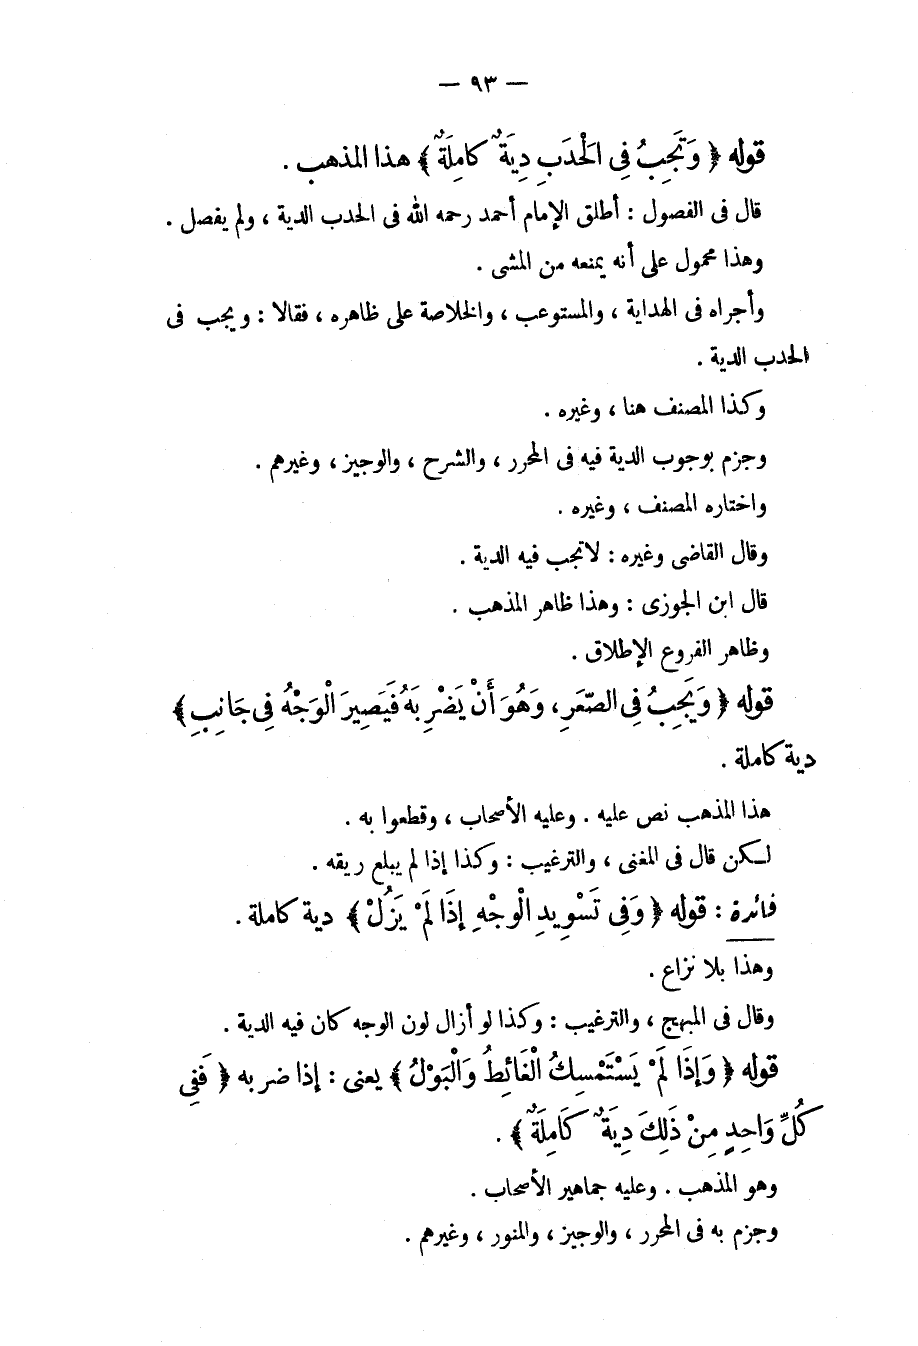 — ٩٣ —
قوله ﴿ وَتَجِبُ فِى الْحَدَبِ دِيَةٌ كَامِلَةٌ ﴾ هذا المذهب .
قال فى الفصول : أطلق الإمام أحمد رحمه الله فى الحدب الدية ، ولم يفصل .
وهذا محمول على أنه يمنعه من المشى .
وأجراه فى الهداية ، والمستوعب ، والخلاصة على ظاهره ، فقالا : ويجب فى
الحدب الدية .
وكذا المصنف هنا ، وغيره .
وجزم بوجوب الدية فيه فى المحرر ، والشرح ، والوجيز ، وغيرهم .
واختاره المصنف ، وغيره .
وقال القاضى وغيره : لاتجب فيه الدية .
قال ابن الجوزى : وهذا ظاهر المذهب .
وظاهر الفروع الإطلاق .
قوله ﴿ وَيَجِبُ فِى الصَّعَرِ ، وَهُوَ أَنْ يَضْرِبَهُ فَيَصِيرَ الْوَجْهُ فِى جَانِبٍ ﴾
دية كاملة .
هذا المذهب نص عليه . وعليه الأصحاب ، وقطعوا به .
لكن قال فى المغنى ، والترغيب : وكذا إذا لم يبلع ريقه .
فائدة : قوله ﴿ وَفِى تَسْوِيدِ الْوَجْهِ إِذَا لَمْ يَزُلْ ﴾ دية كاملة .
وهذا بلا نزاع .
وقال فى المبهج ، والترغيب : وكذا لو أزال لون الوجه كان فيه الدية .
قوله ﴿ وَإِذَا لَمْ يَسْتَمْسِكُ الْغَائِطُ وَالْبَوْلُ ﴾ يعنى : إذا ضربه ﴿ فَفِى
كُلِّ وَاحِدٍ مِنْ ذَلِكَ دِيَةٌ كَامِلَةٌ ﴾ .
وهو المذهب . وعليه جماهير الأصحاب .
وجزم به فى المحرر ، والوجيز ، والمنور ، وغيرهم .